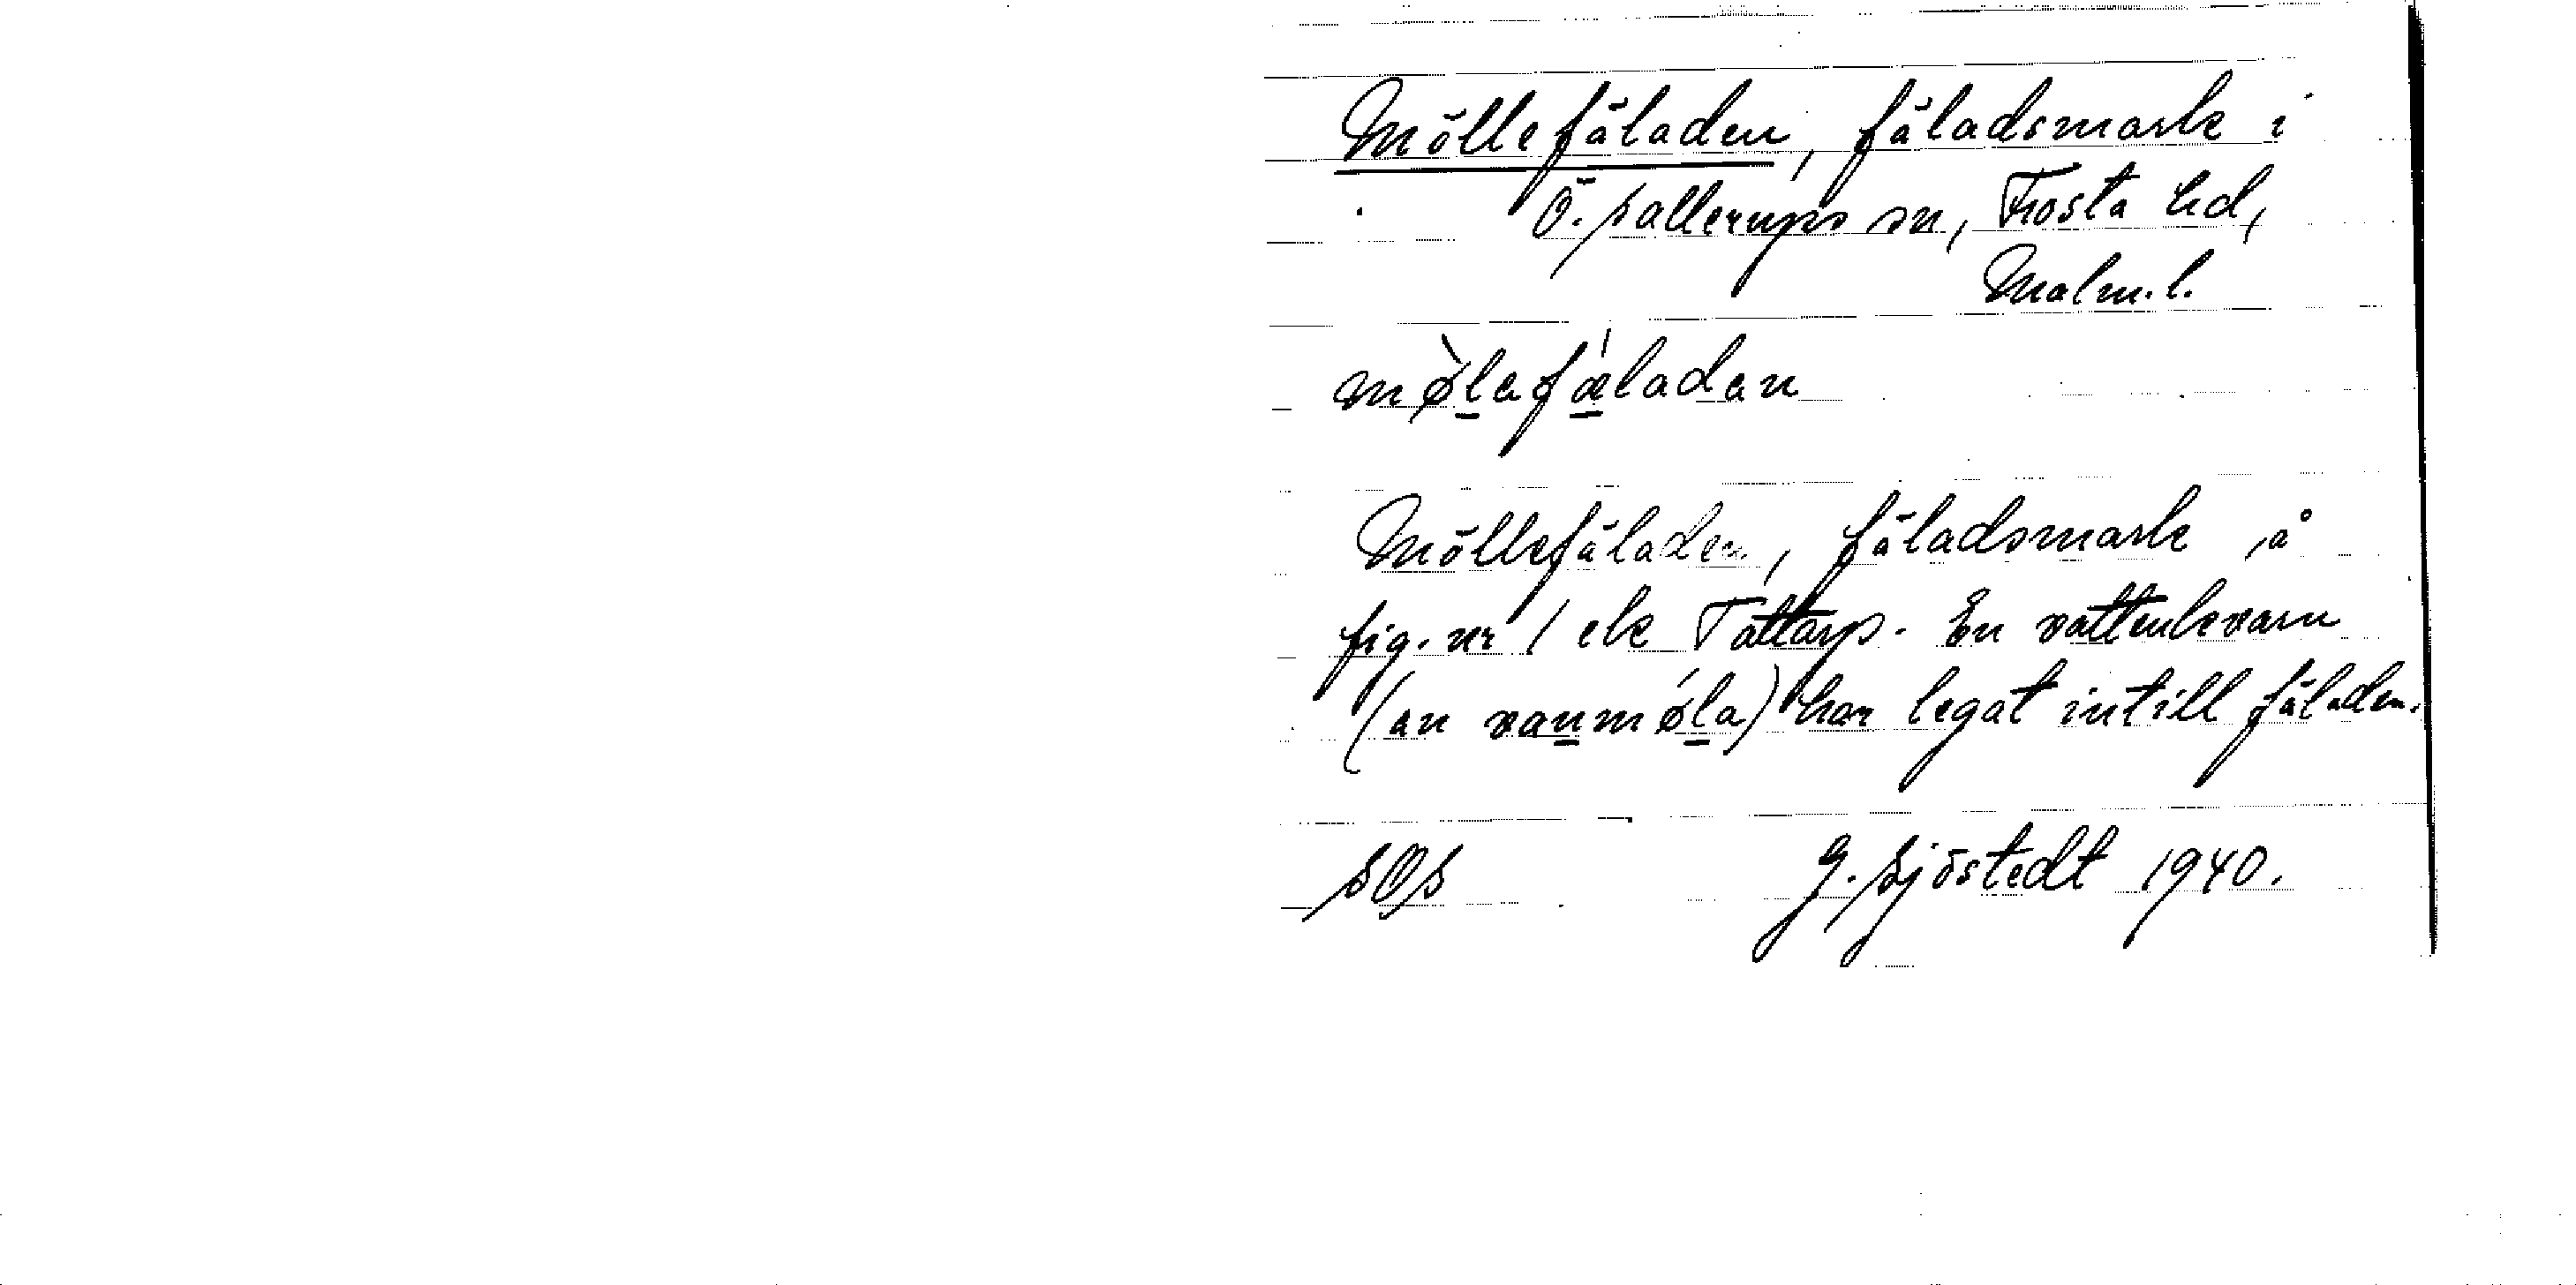 Möllefäladen, fäladsmark i
Ö. Sallerups sn, Frosta hd,
Malm. l.
mø̀lafǽladan
Möllefäladen, fäladsmark å
fig. nr 1 ek Tattarp. En vattenkvarn
(an vanmǿla) har legat intill fäladen.
SOS G. Sjöstedt 1940.